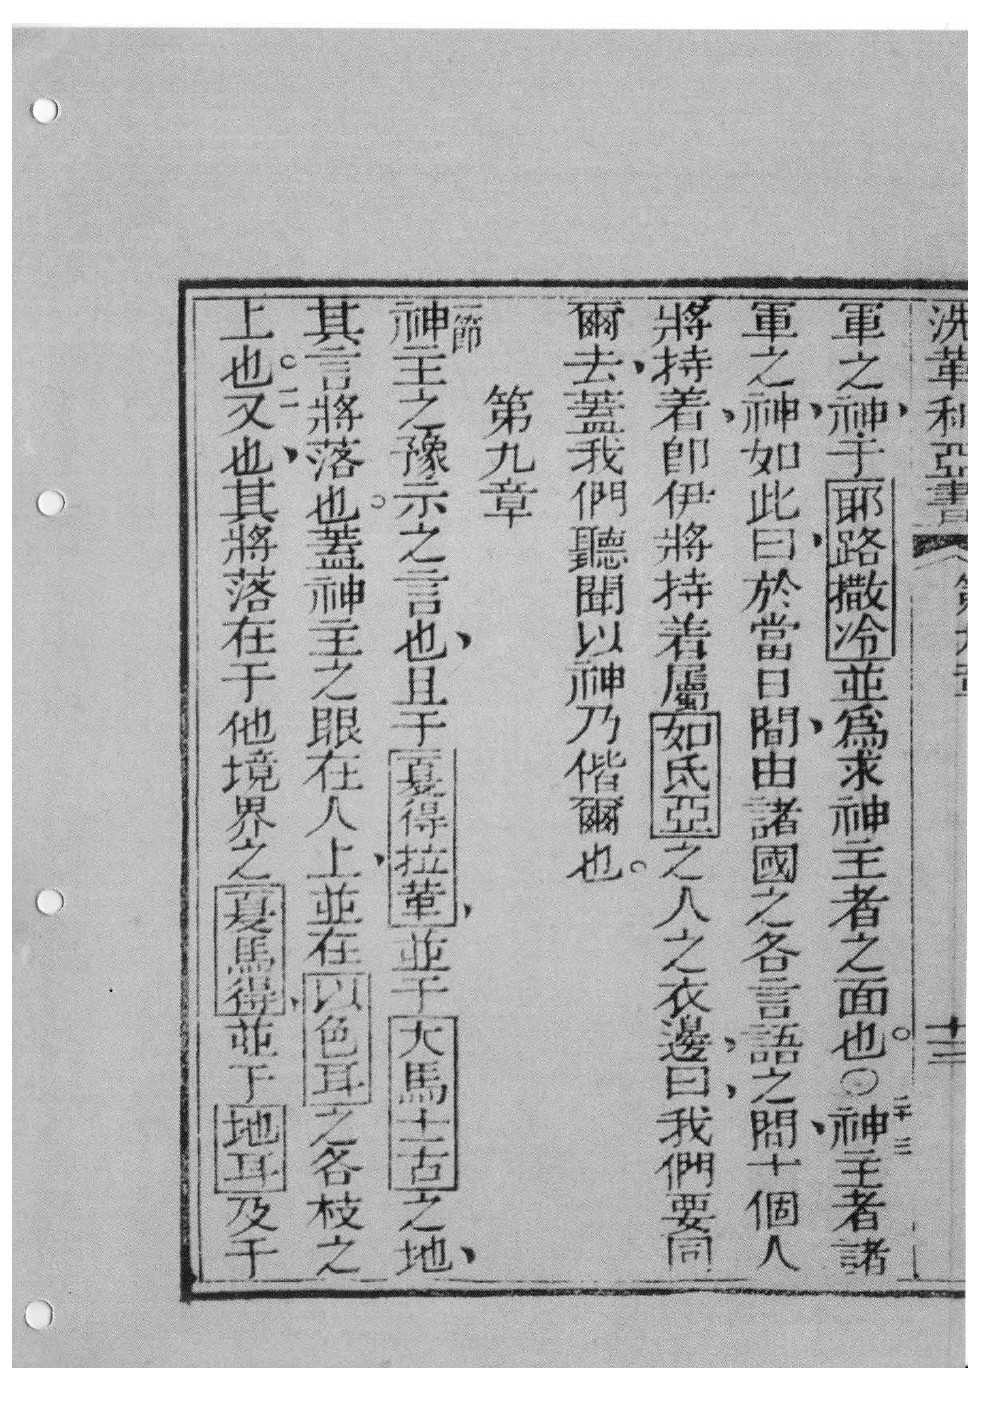 洗革利亞書 第九章 十二
軍之神、于耶路撒冷並爲求神主者之面也。〇二十三神主者諸
軍之神、如此曰、於當日間、由諸國之各言語之間、十個人
將持着、卽伊將持着屬如氐亞之人之衣邊、曰、我們要同
爾去、蓋我們聽聞以神乃偕爾也。
第九章
一節神主之豫示之言也、且于夏得拉葷、並于大馬士古之地、
其言將落也。蓋神主之眼在人上、並在以色耳之各枝之
上也。二又也、其將落在于他境界之夏馬得、並于地耳及于